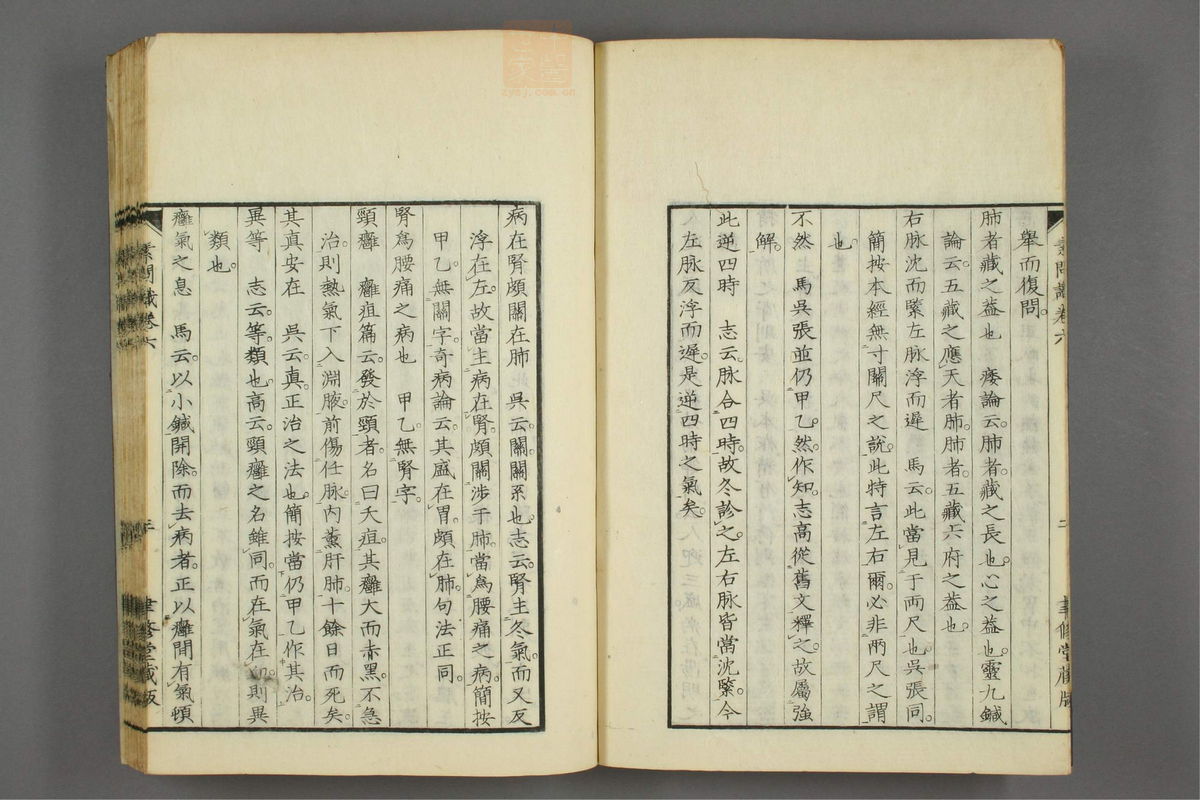 素問識卷六
二
聿修堂藏版
舉而復問。
肺者藏之蓋也　痿論云。肺者。藏之長也。心之蓋也。靈九鍼
論云。五藏之應天者肺。肺者。五藏六府之蓋也。
右脉沈而緊左脉浮而遲　馬云。此當見于兩尺也。吳張同。
簡按本經無寸關尺之說。此特言左右爾。必非兩尺之謂
也。
不然　馬吳張並仍甲乙。然作知。志高從舊文釋之。故屬強
解。
此逆四時　志云。脉合四時。故冬診之。左右脉皆當沈緊。今
左脉反浮而遲。是逆四時之氣矣。
病在腎頗關在肺　吳云。關。關系也。志云。腎主冬氣。而又反
浮在左。故當主病在腎。頗關涉于肺。當爲腰痛之病。簡按
甲乙。無關字。奇病論云。其盛在胃。頗在肺。句法正同。
腎爲腰痛之病也　甲乙無腎字。
頸癰　癰疽篇云。發於頸者。名曰夭疽。其癰大而赤黑。不急
治。則熱氣下入淵腋。前傷任脉。內薰肝肺。十餘日而死矣。
其真安在　吳云。真。正治之法也。簡按當仍甲乙作其治。
異等　志云。等。類也。高云。頸癰之名雖同。而在氣在血則異
類也。
癰氣之息　馬云。以小鍼開除而去病者。正以癰間有氣頓
素問識卷六
三
聿修堂藏版